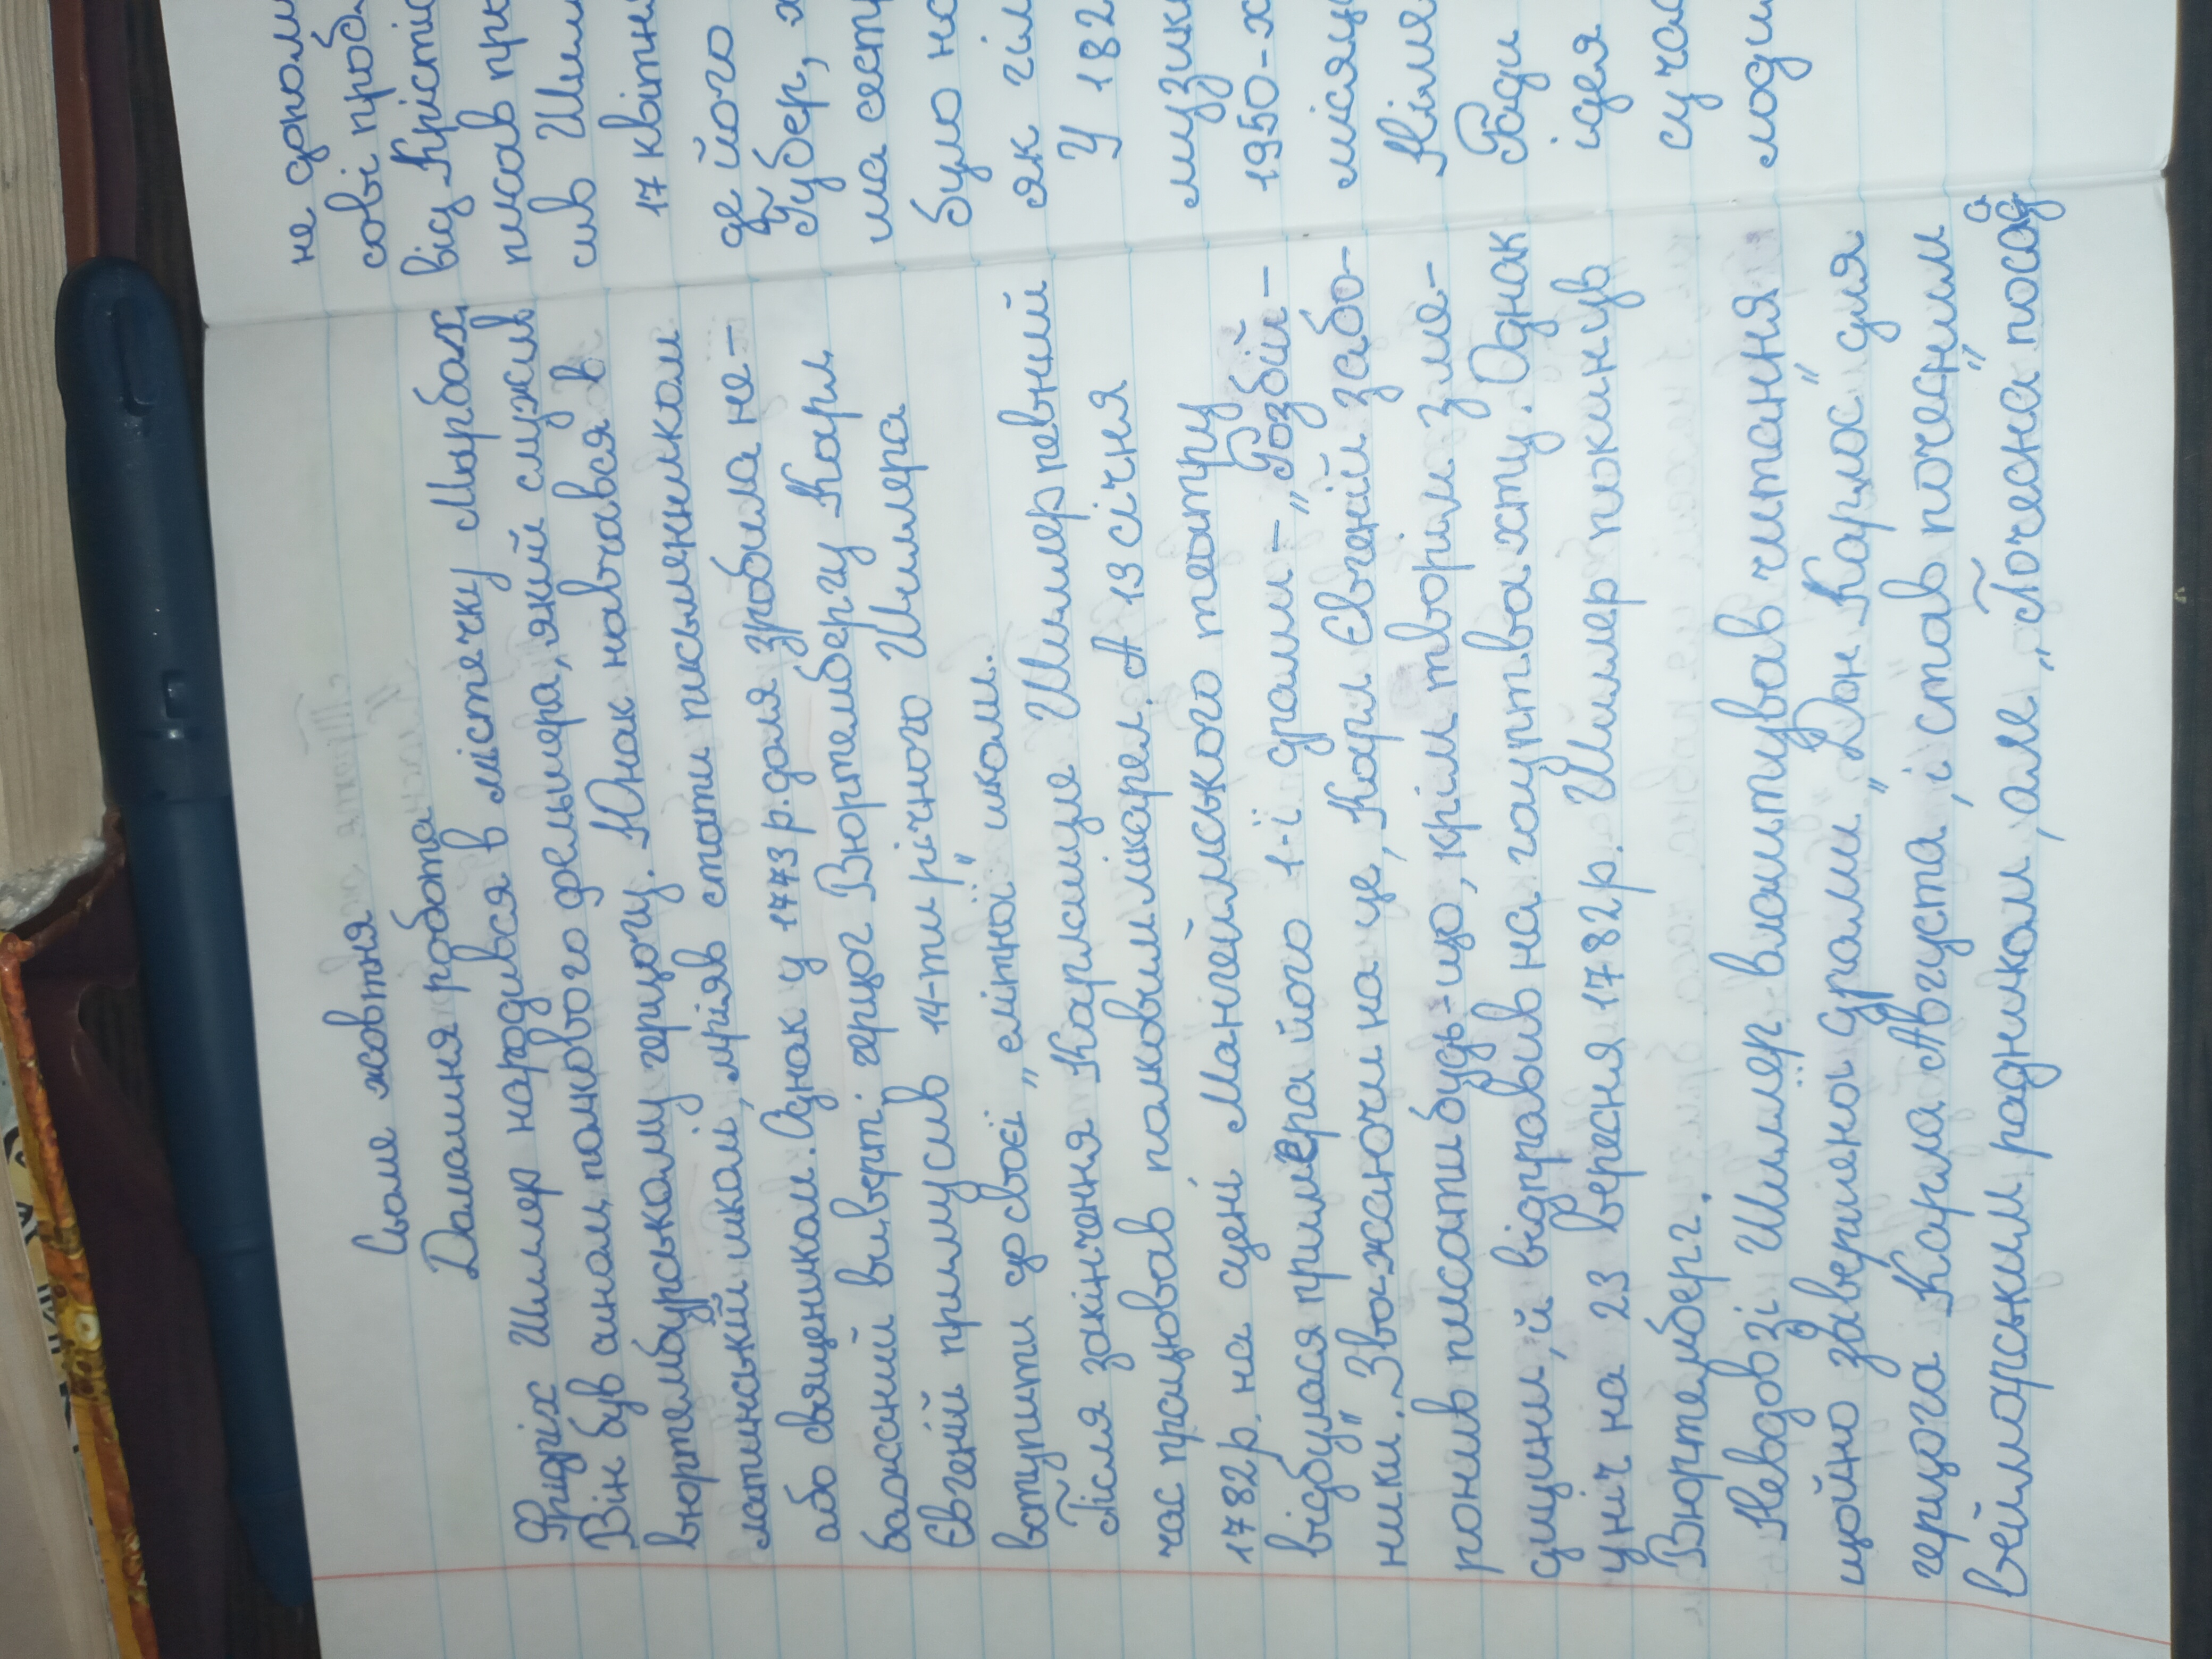 Сьоме жовтня
Домашня робота
Фрідріх Шиллер народився в містечку Марбах.
Він був сином полкового фельдшера, який служив
вюртембурському герцогу. Юнак навчався в
латинській школі, мріяв стати письменником
або священиком. Однак у 1773 р. доля зробила не-
бажаний виверт: герцог Вюртембергу Карл
Євгеній примусив 14-ти річного Шиллера
вступити до своєї „елітної" школи.
Після закінчення Карлсшуле Шиллер певний
час працював полковим лікарем. А 13 січня
1782 р. на сцені Мангеймського театру
відбулася прим'єра його 1-ї драми – „Розбій-
ники". Зважаючи на це, Карл Євгеній забо-
ронив писати будь-що, крім творів з ме-
дицини, й відправив на гауптвахту. Однак
уніч на 23 вересня 1782 р. Шиллер покинув
Вюртемберг.
Невдовзі Шиллер влаштував читання
щойно завершеної драми „Дон Карлос" для
герцога Карла Августа, і став почесним
веймарським радником, але „Почесна" посада
не допом
сові проб
від Крістіа
писав пр
сив Шил
17 квітн
де його
Губер, х
ма сестр
було на
як гім
У 182
музик
1950-х
місяц
Німе
Ради
ідея
суча
люди